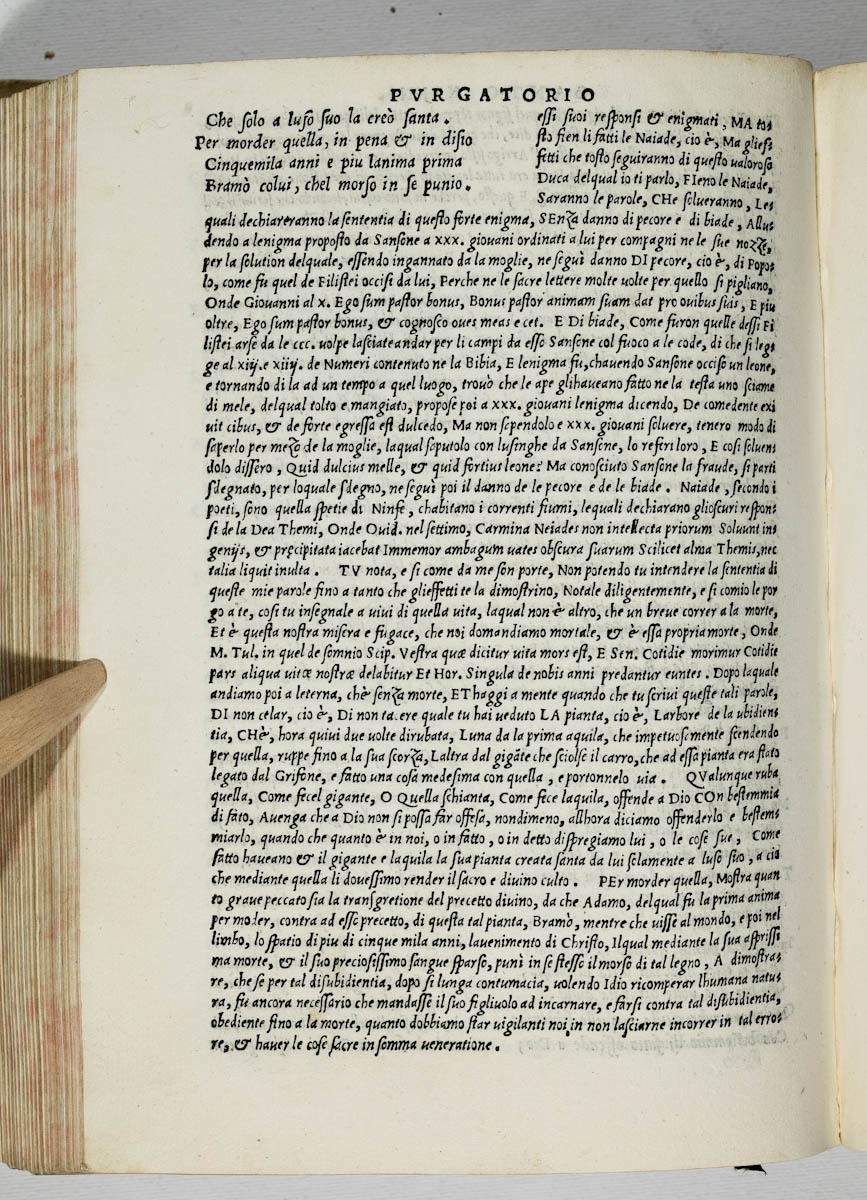 PVRGATORIO
Che solo a luso suo la creò santa.
Per morder quella, in pena & in disio
Cinquemila anni e piu lanima prima
Bramò colui, chel morso in se punio.
essi suoi responsi & enigmati, MA tos
sto fien li fatti le Naiade, cio è, Ma glief
fetti che tosto seguiranno di questo ualoroso
Duca delqual io ti parlo, FIeno le Naiade,
Saranno le parole, CHe solueranno, Les
quali dechiareranno la sententia di questo forte enigma, SEnza danno di pecore e di biade, Allus
dendo a lenigma proposto da Sansone a xxx. giouani ordinati a lui per compagni ne le sue nozze,
per la solution delquale, essendo ingannato da la moglie, ne seguì danno DI pecore, cio è, di Popos
lo, come fu quel de Filistei occisi da lui, Perche ne le sacre lettere molte uolte per quello si pigliano,
Onde Giouanni al x. Ego sum pastor bonus, Bonus pastor animam suam dat pro ouibus suis, E piu
oltre, Ego sum pastor bonus, & cognosco oues meas e cet. E DI biade, Come furon quelle dessi Fi
listei arse da le ccc. uolpe lasciate andar per li campi da esso Sansone col fuoco a le code, di che si legs
ge al xiij. e xiiij. de Numeri contenuto ne la Bibia, E lenigma fu, chauendo Sansone occiso un leone,
e tornando di la ad un tempo a quel luogo, trouò che le ape glihaueano fatto ne la testa uno sciame
di mele, delqual tolto e mangiato, propose poi a xxx. giouani lenigma dicendo, De comedente exi
uit cibus, & de forte egressa est dulcedo, Ma non sapendolo e xxx. giouani soluere, tenero modo di
saperlo per mezo de la moglie, laqual saputolo con lusinghe da Sansone, lo referì loro, E cosi soluens
dolo dissero, Quid dulcius melle, & quid fortius leone? Ma conosciuto Sansone la fraude, si partì
sdegnato, per loquale sdegno, ne seguì poi il danno de le pecore e de le biade. Naiade, secondo i
poeti, sono quella spetie di Ninfe, chabitano i correnti fiumi, lequali dechiarano glioscuri respons
si de la Dea Themi, Onde Ouid. nel settimo, Carmina Neiades non intellecta priorum Soluunt ins
genijs, & præcipitata iacebat Immemor ambagum uates obscura suarum Scilicet alma Themis, nec
talia liquit inulta. TV nota, e si come da me son porte, Non potendo tu intendere la sententia di
queste mie parole fino a tanto che glieffetti te la dimostrino, Notale diligentemente, e si comio le por
go a te, cosi tu insegnale a uiui di quella uita, laqual non è altro, che un breue correr a la morte,
Et è questa nostra misera e fugace, che noi domandiamo mortale, & è essa propria morte, Onde
M. Tul. in quel de somnio Scip. Vestra quæ dicitur uita mors est, E Sen. Cotidie morimur Cotidie
pars aliqua uitæ nostræ delabitur Et Hor. Singula de nobis anni predantur euntes. Dopo laquale
andiamo poi a leterna, chè senza morte, ET haggi a mente quando che tu scriui queste tali parole,
DI non celar, cio è, Di non tacere quale tu hai ueduto LA pianta, cio è, Larbore de la ubidiens
tia, CHè, hora quiui due uolte dirubata, Luna da la prima aquila, che impetuosamente scendendo
per quella, ruppe fino a la sua scorza, Laltra dal gigāte che sciolse il carro, che ad essa pianta era stato
legato dal Grifone, e fatto una cosa medesima con quella, e portonnelo uia. QValunque ruba
quella, Come fecel gigante, O Quella schianta, Come fece laquila, offende a Dio COn bestemmia
di fato, Auenga che a Dio non si possa far offesa, nondimeno, allhora diciamo offenderlo e bestems
miarlo, quando che quanto è in noi, o in fatto, o in detto dispregiamo lui, o le cose sue, Come
fatto haueano & il gigante e laquila la sua pianta creata santa da lui solamente a luso suo, a cio
che mediante quella li douessimo render il sacro e diuino culto. PEr morder quella, Mostra quan
to graue peccato sia la transgretione del precetto diuino, da che Adamo, delqual fu la prima anima
per moder, contra ad esso precetto, di questa tal pianta, Bramò, mentre che uisse al mondo, e poi nel
limbo, lo spatio di piu di cinque mila anni, lauenimento di Christo, Ilqual mediante la sua asprissi
ma morte, & il suo preciosissimo sangue sparso, punì in se stesso il morso di tal legno, A dimostra
re, che se per tal disubidientia, dopo si lunga contumacia, uolendo Idio ricomperar lhumana natu
ra, fu ancora necessario che mandasse il suo figliuolo ad incarnare, e farsi contra tal disubidientia,
obediente fino a la morte, quanto dobbiamo star uigilanti noi, in non lasciarne incorrer in tal erros
re, & hauer le cose sacre in somma ueneratione.